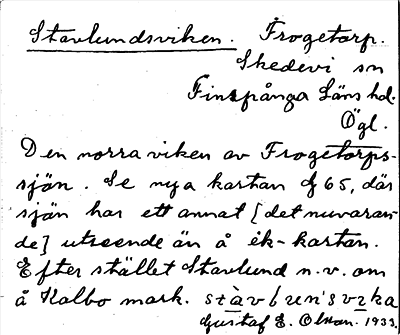 Stavlundsviken. Frogetorp.
Skedevi sn
Finspånga Läns hd.
Ögl.
Den norra viken av Frogetorps-
sjön. Se nya kartan f 65, där
sjön har ett annat [det nuvaran-
de] utseende än å ek-kartan.
Efter stället Stavlund n.v. om
å Kalbo mark. stàvlʉn's
Gustaf E. Olson. 1933.